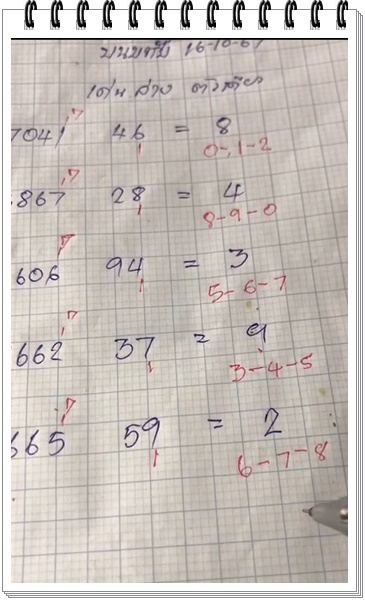 16-10-67
เด่น ล่าง ตัวเดียว
7041 46 = 8
7 1 0-1-2
867 28 = 4
7 1 8-9-0
606 94 = 3
7 1 5-6-7
662 37 = 9
7 1 3-4-5
665 59 = 2
7 1 6-7-8